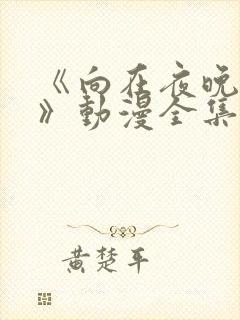 《向在夜晚
》動漫全集
黄楚平